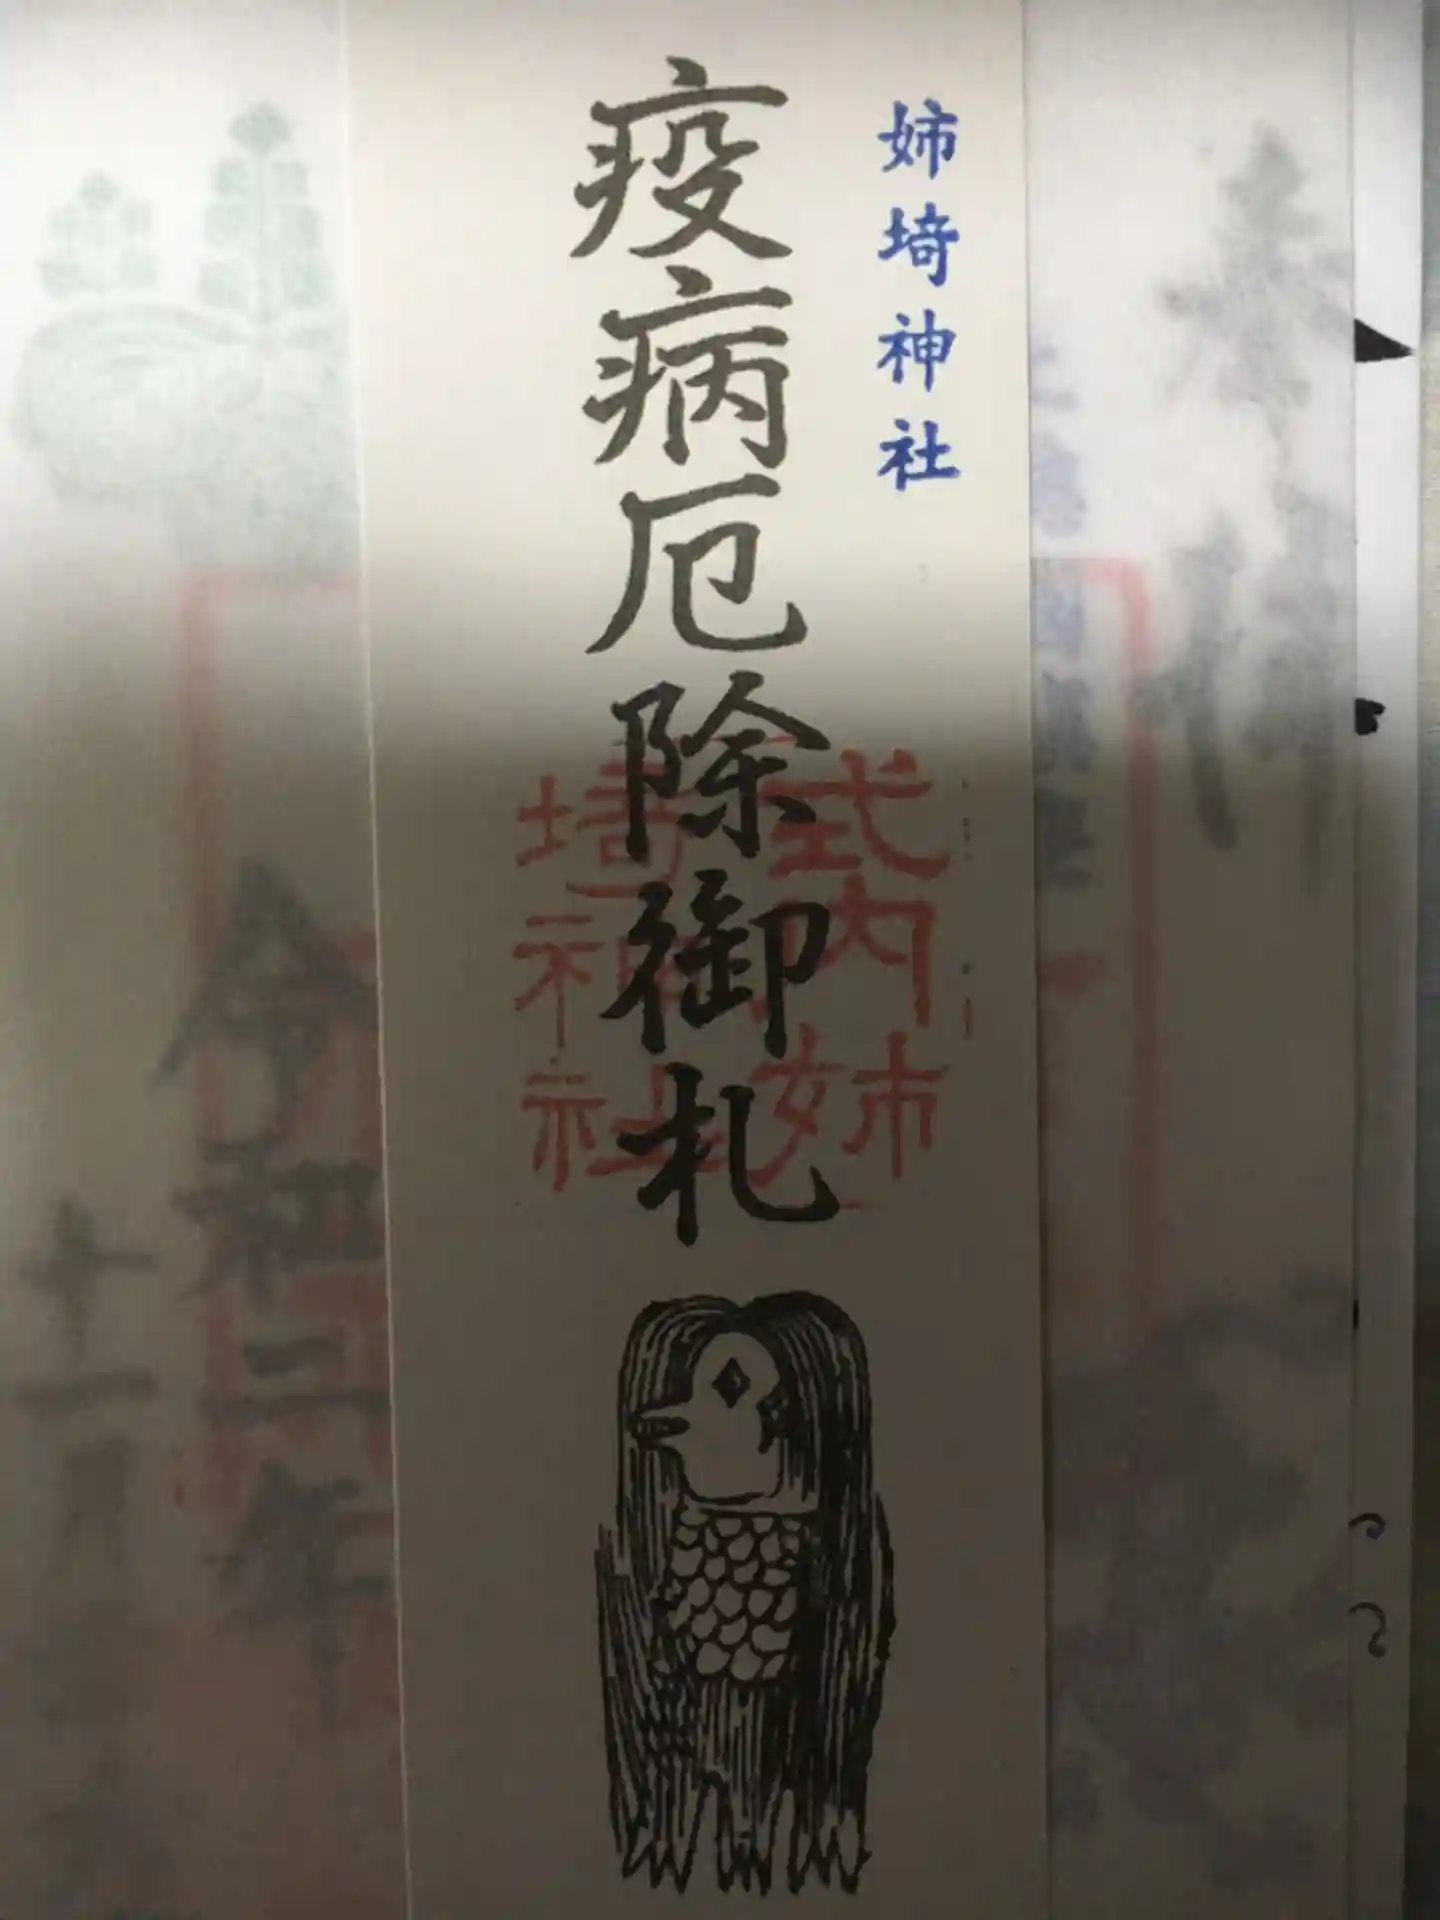 姉埼神社
疫病厄除御札
式内姉
埼神社
奉拝
令和二年
十一月